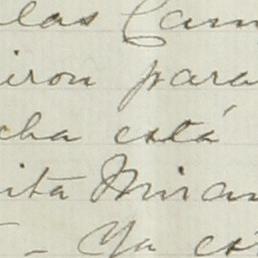 las Cam
iron para
cha está
ita Miran
- Ya es